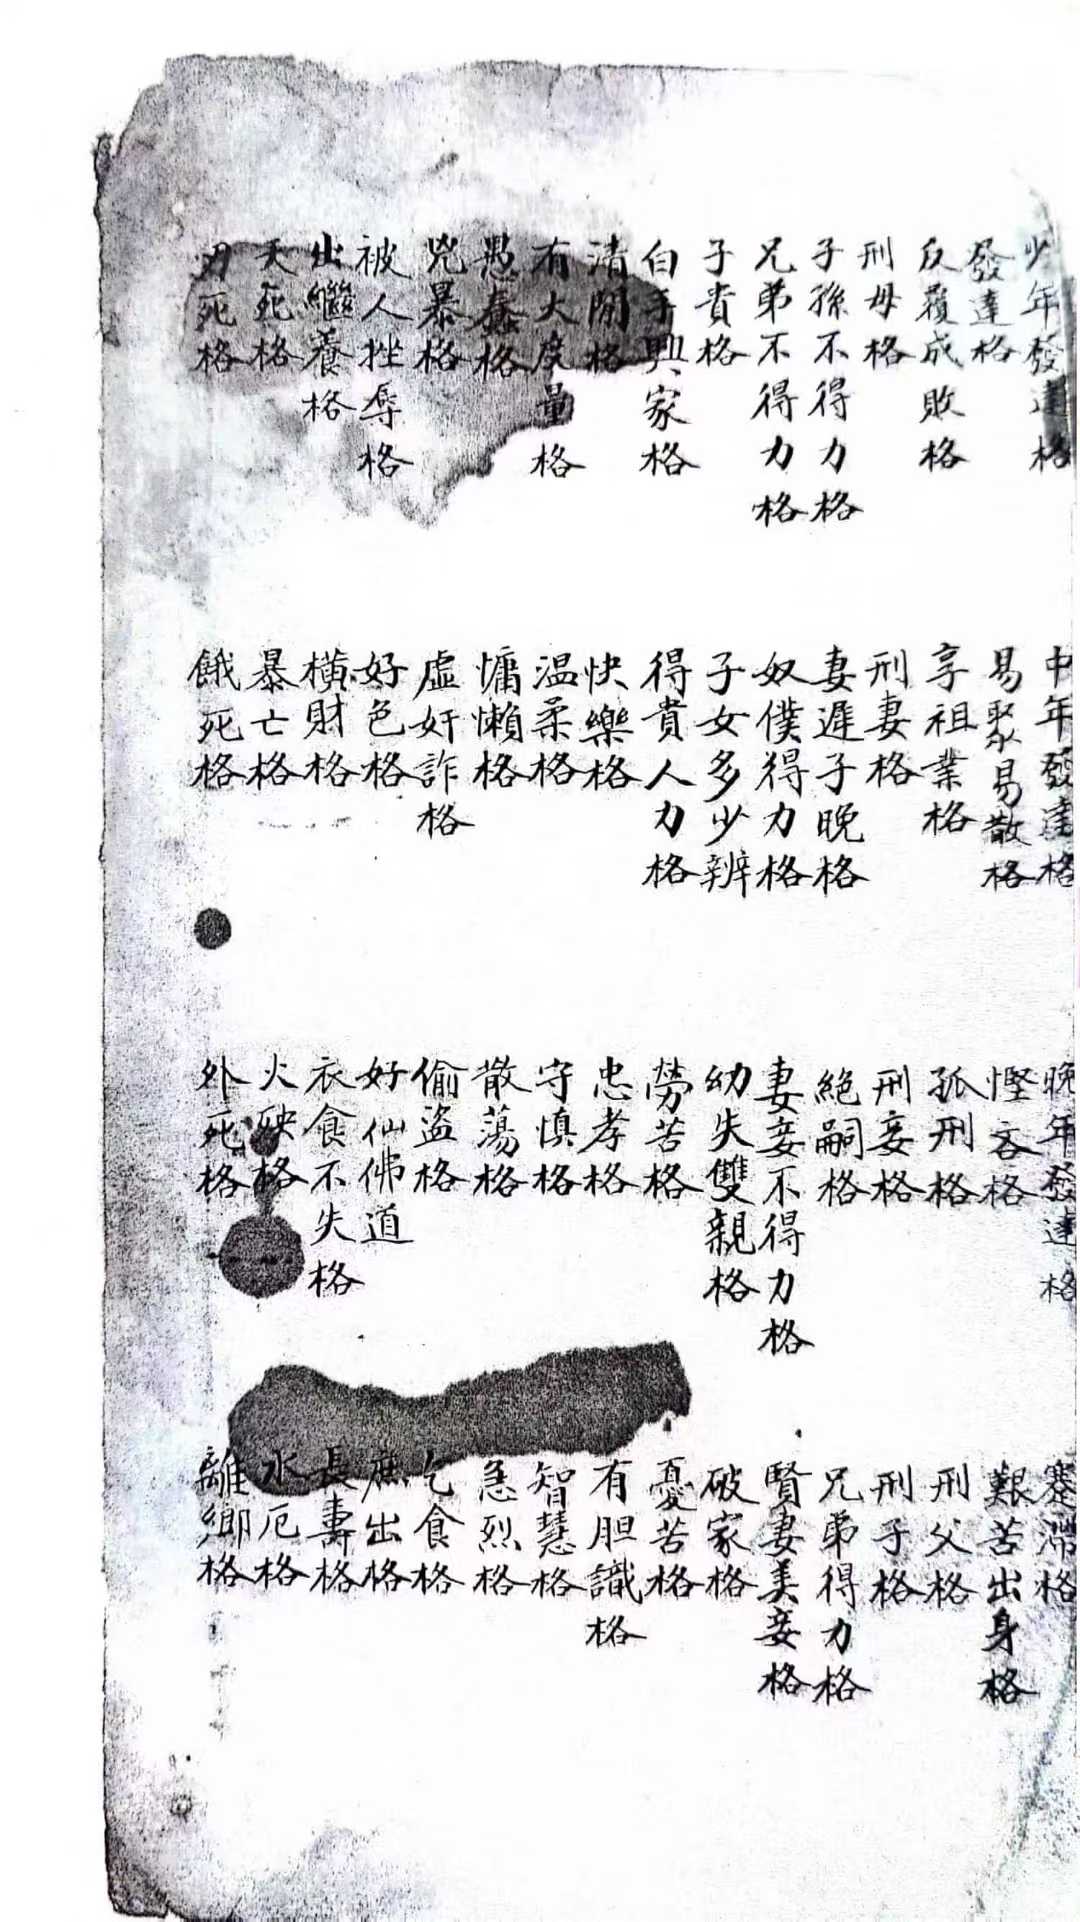 少年發達格 中年發達格 晚年發達格 蹇滯格
發達格 易聚易散格 慳吝格 艱苦出身格
反覆成敗格 享祖業格 孤刑格 刑父格
刑母格 刑妻格 刑妾格 刑子格
子孫不得力格 妻遲子晚格 絕嗣格 兄弟得力格
兄弟不得力格 奴僕得力格 妻妾不得力格 賢妻美妾格
子貴格 子女多少辨 幼失雙親格 破家格
白手興家格 得貴人力格 勞苦格 憂苦格
清閒格 快樂格 忠孝格 有胆識格
有大度量格 温柔格 守慎格 智慧格
愚蠢格 慵懶格 散蕩格 急烈格
兇暴格 虛奸詐格 偷盜格 乞食格
被人挫辱格 好色格 好仙佛道 庶出格
出繼養格 橫財格 衣食不失格 長壽格
夭死格 暴亡格 火殃格 水厄格
刃死格 餓死格 外死格 離鄉格